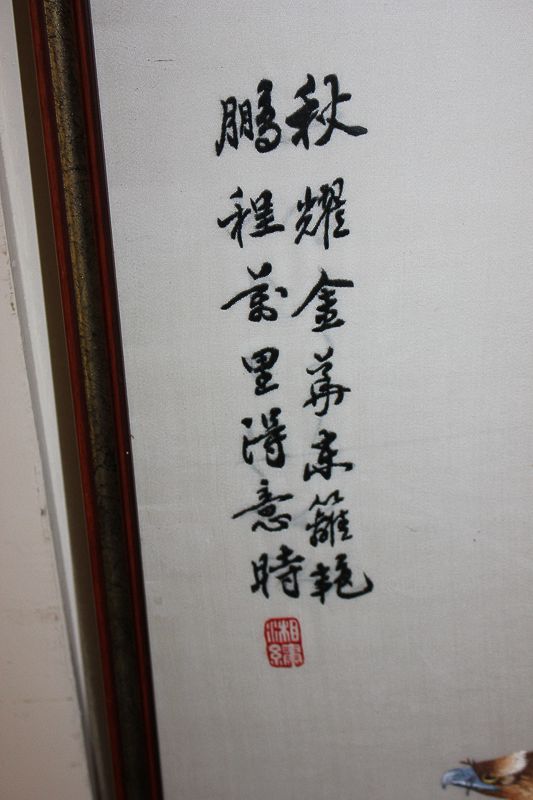 秋耀金華東籬艳
鵬程萬里得意時
湘繡